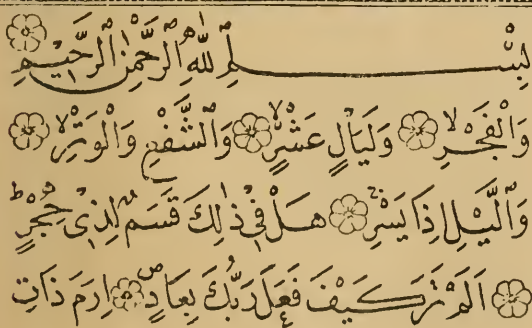 بِسْمِ اللّٰهِ الرَّحْمٰنِ الرَّحِيْمِ ۝
وَالْفَجْرِ ۙ۝ وَلَيَالٍ عَشْرٍ ۙ۝ وَّالشَّفْعِ وَالْوَتْرِ ۙ۝
وَالَّيْلِ اِذَا يَسْرِ ۚ۝ هَلْ فِيْ ذٰلِكَ قَسَمٌ لِّذِيْ حِجْرٍ ؕ
۝ اَلَمْ تَرَ كَيْفَ فَعَلَ رَبُّكَ بِعَادٍ ۪ۙ۝ اِرَمَ ذَاتِ